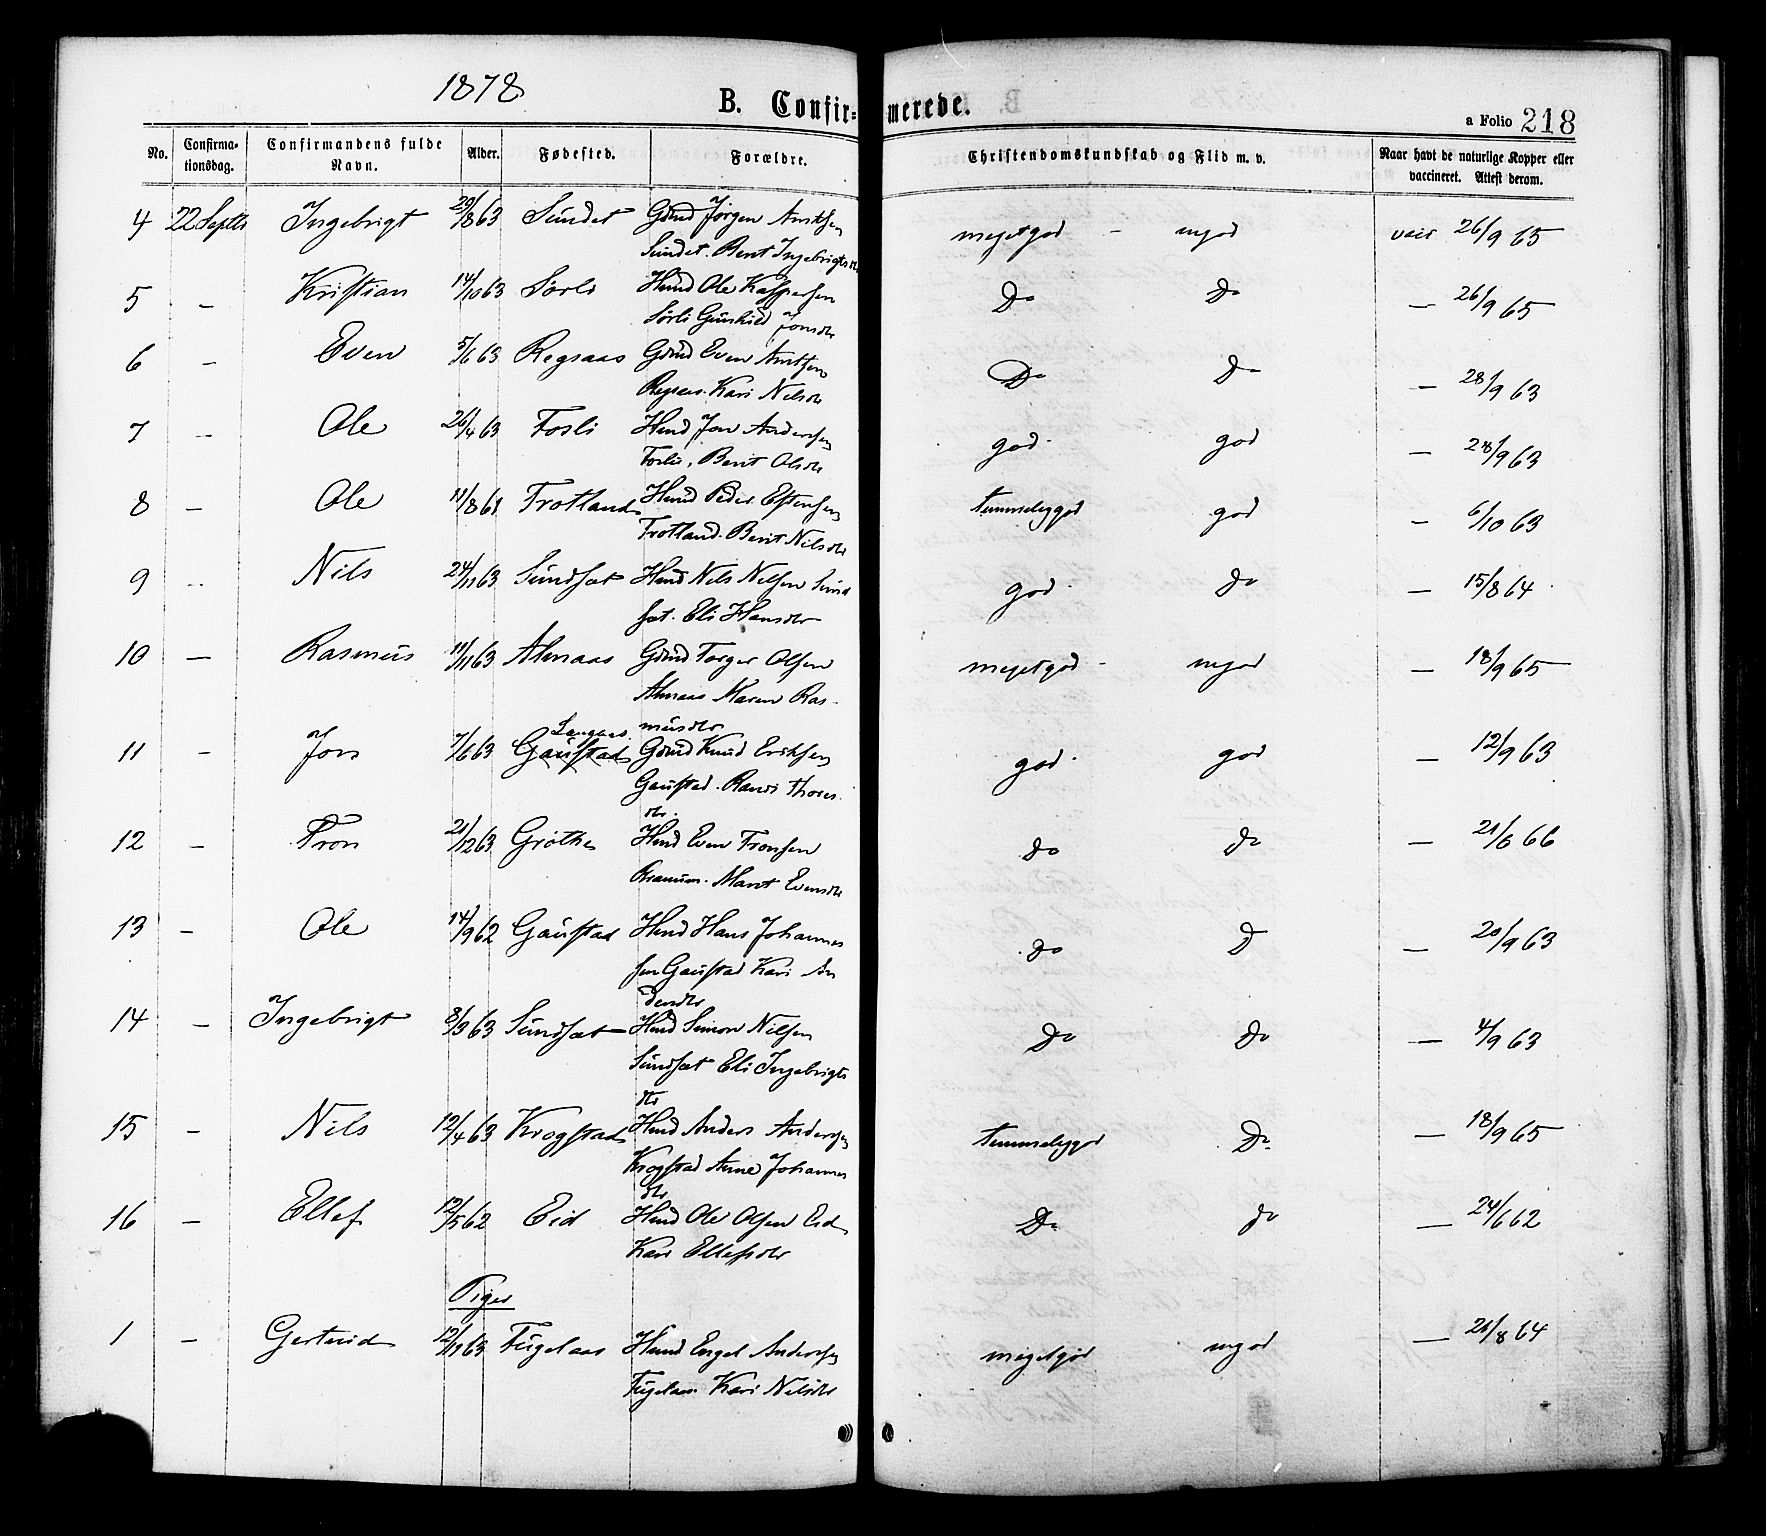 1878
B. Confir- merede.
a Folio 218
No. Confirma-tionsdag. Confirmandens fulde Navn. Alder. Fødested. Forældre. Christendomskundskab og Flid m. v. Naar havt de naturlige Kopper eller vaccineret. Attest derom.
4 22 Septbr Ingebrigt 29/8 63 Sundet Gmd Jørgen Arntsen megetgod - mgod vacc 26/9 65
Sundet. Berit Ingebrigtsdtr
5 - Kristian 14/10 63 Sørli Hmd Ole Kaspersen Do Do - 26/9 65
Sørli Gunhild Jonsdtr
6 - Even 5/6 63 Regsaas Gmd Even Arntsen Do Do - 28/9 63
Regsaas. Kari Nilsdtr
7 - Ole 26/4 63 Fosli Hmd Jon Andersen god. god - 28/9 63
Fosli, Berit Olsdtr
8 - Ole 11/8 61 Frotland Hmd Peder Estensen temmeliggod god - 6/10 63
Frotland. Berit Nilsdtr
9 - Nils 24/11 63 Sundsæt Hmd Nils Nilsen Sund god. do - 15/8 64
sæt. Eli Hansdtr
10 - Rasmus 11/11 63 Almaas Gmd Torger Olsen megetgod - mgod - 18/9 65
Almaas Maren Ras-
musdtr
11 - Jon 7/6 63 Langaas Gaustad Gmd Knud Eriksen god. god - 12/9 63
Gaustad. Randi Thores
dtr.
12 - Tron 21/12 63 Grøthe Hmd Even Tronsen do do - 21/6 66
Marit Evensdtr
13 - Ole 14/9 62 Gaustad Hmd Hans Johannes do D - 20/9 63
sen Gaustad Kari An
dersdtr
14 - Ingebrigt 8/3 63 Sundsæt Hmd Simon Nilsen Do do - 4/9 63
Sundsæt Eli Ingebrigts
dtr
15 - Nils 12/4 63 Krogstad Hmd Anders Andersen temmeliggod Do - 18/9 65
Krogstad Anne Johannes
dtr
16 - Ellef 12/5 62 Eid Hmd Ole Olsen Eid Do do - 24/6 62
Kari Ellefsdtr
Piger
1 - Gertrud 12/11 63 Fugelaas Hmd Engel Andersen megetgod mgod - 21/8 64
Fugelaas Kari Nilsdtr